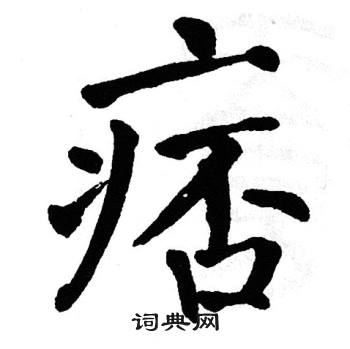 痞
词典网